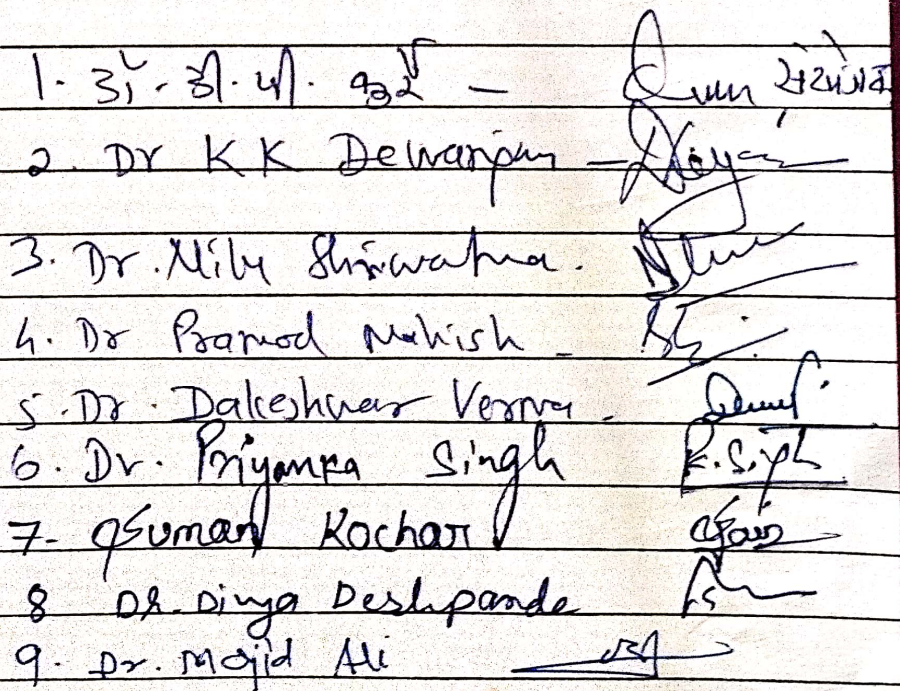 1. डॉ. डी. पी. कुर्रे - संयोजक
2. Dr K K Dewangan -
3. Dr. Mily Shrivastva.
4. Dr Pramod Mahish -
5. Dr. Dakeshwar Verma -
6. Dr. Priyanka Singh P. Singh
7- Suman Kochar
8 Dr. Divya Deshpande
9. Dr. Majid Ali